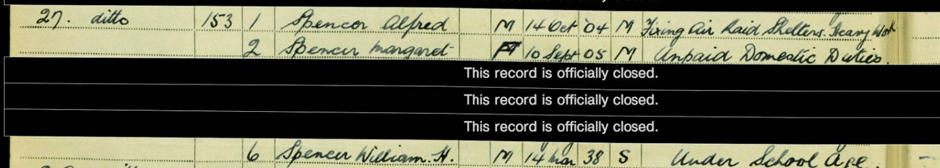 27. ditto 153 1 Spencer Alfred M 14 Oct 04 M Fixing Air Raid Shelters. Heavy Work
2 Spencer Margaret F 10 Sept 05 M Unpaid Domestic Duties.
This record is officially closed.
This record is officially closed.
This record is officially closed.
6 Spencer William. H. M 14 Mar 38 S Under School Age